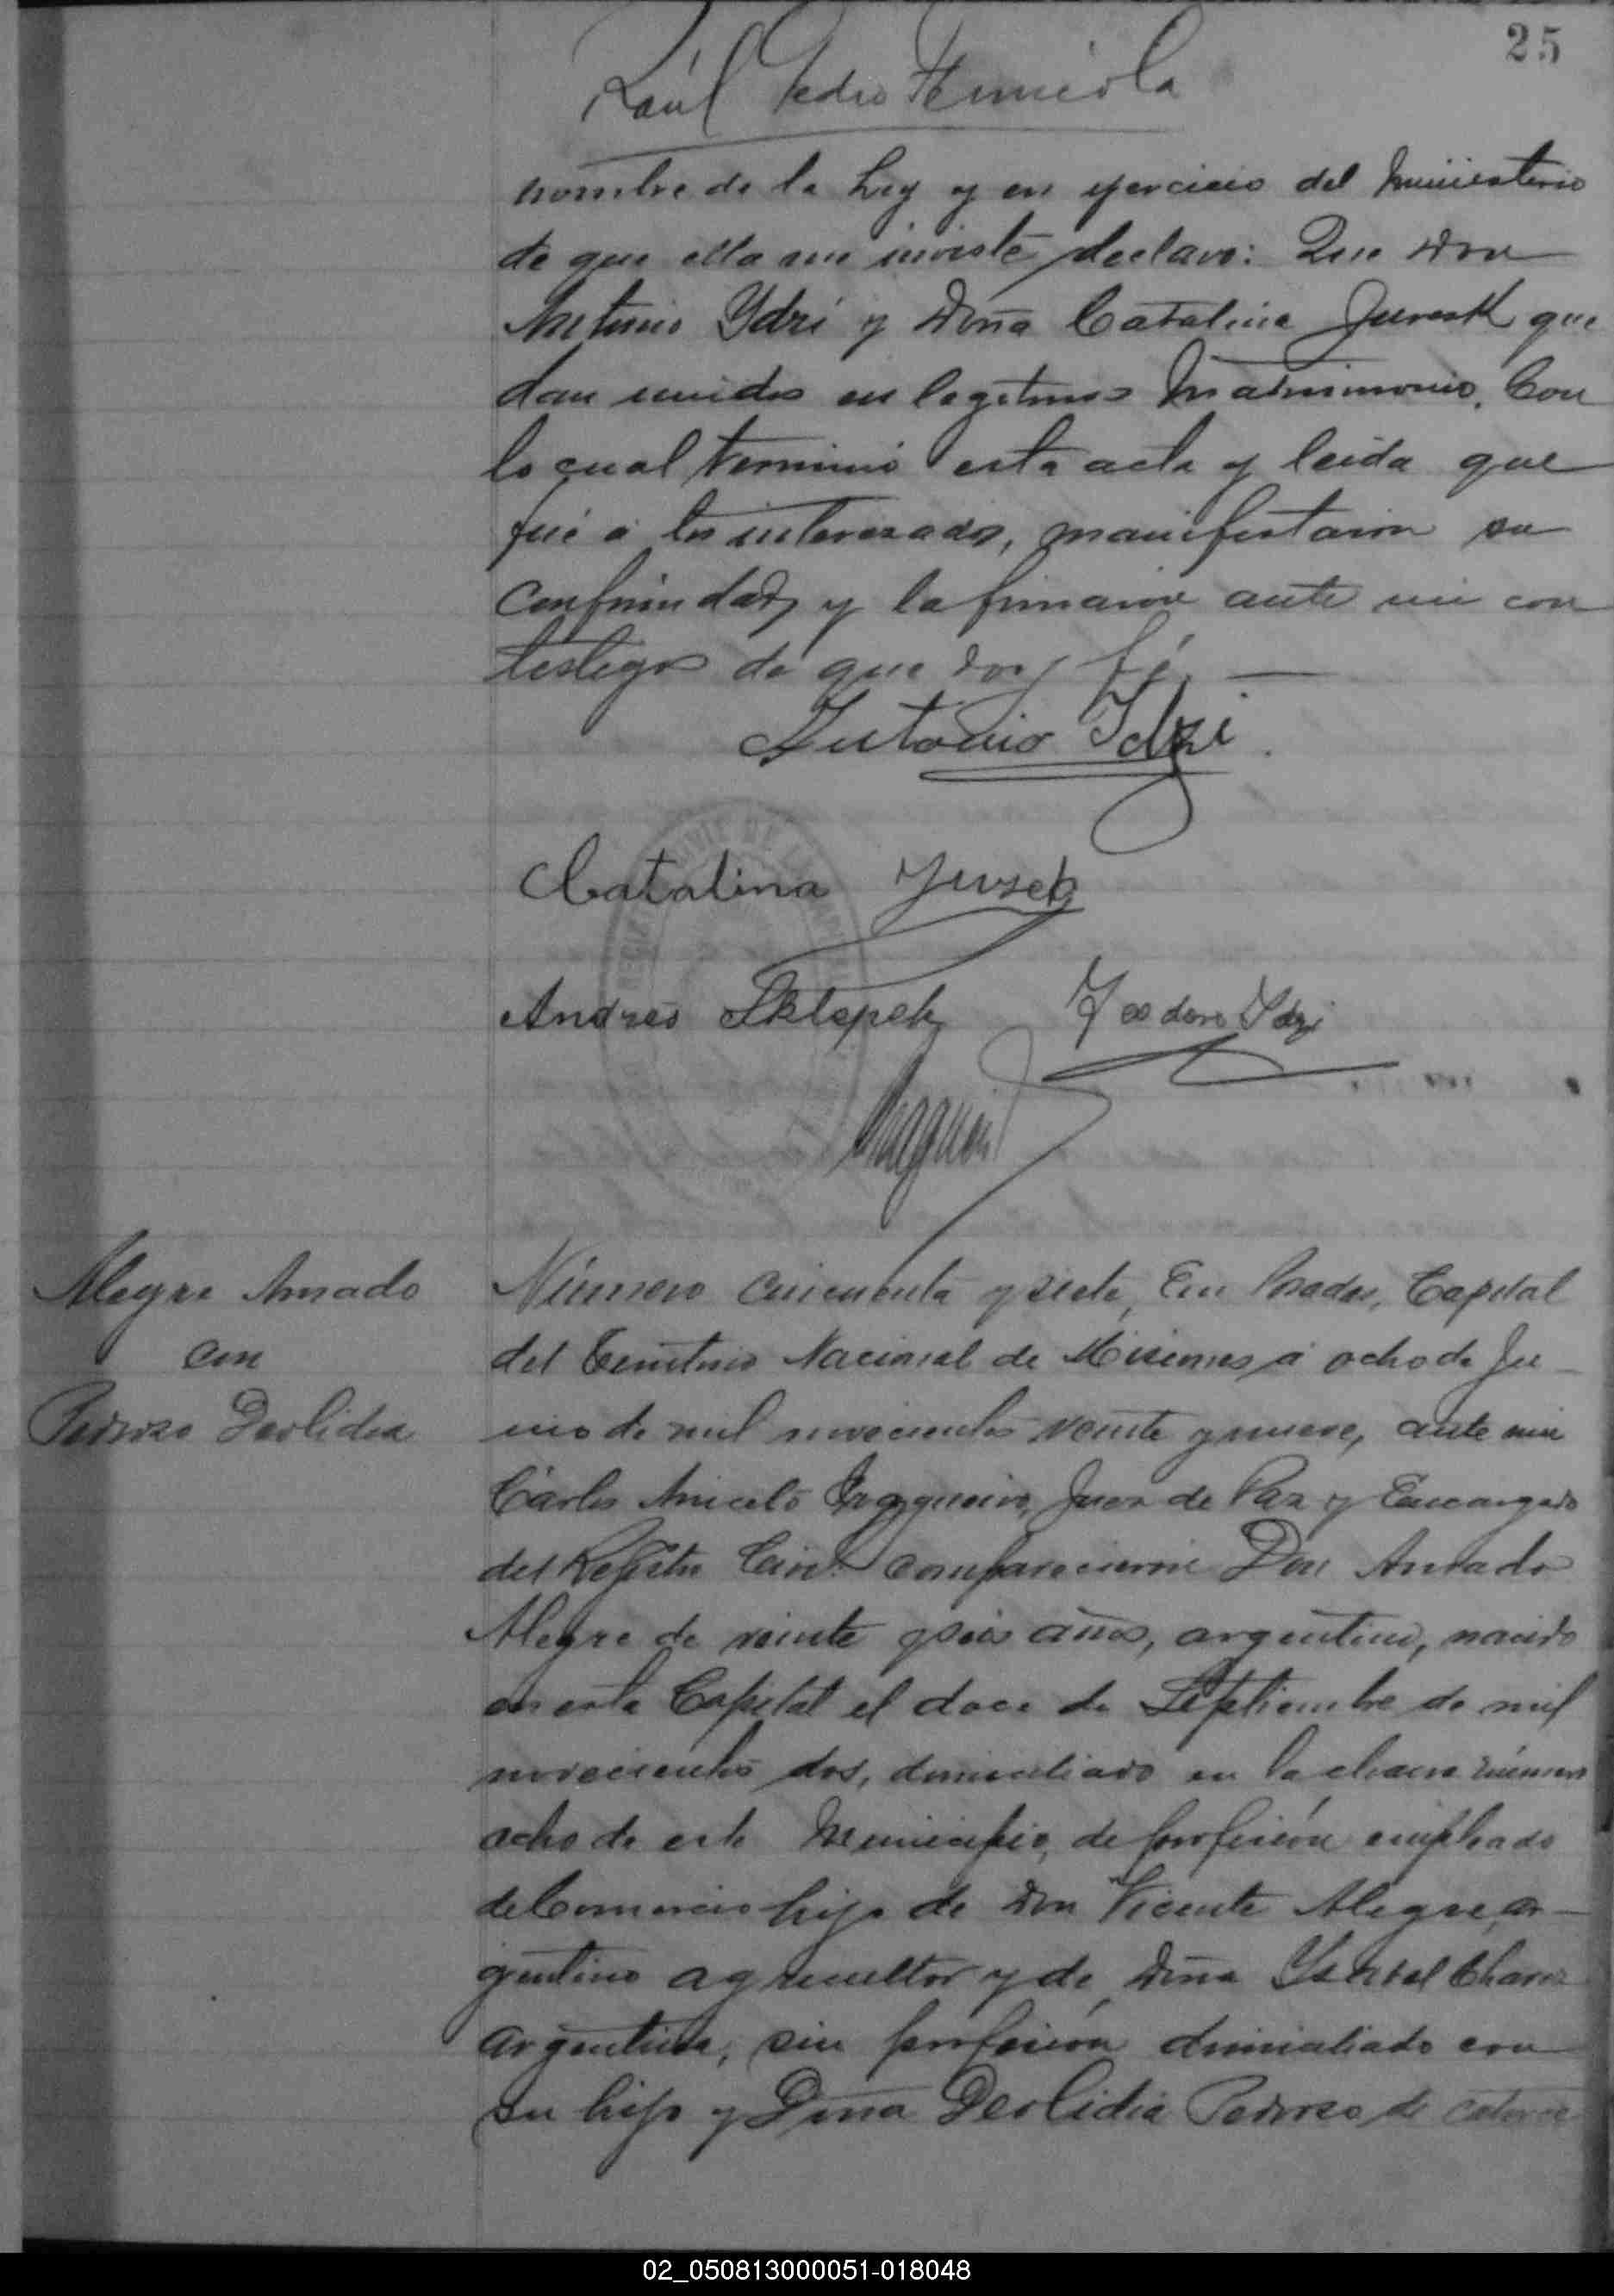 25
Raúl Pedro
nombre de la Ley y en ejercicio del Ministerio
de que ella me inviste declaro: Que Don
Antonio Ydzi y Doña Catalina Juresk que
dan unidos en legitimo Matrimonio. Con
lo cual terminó esta acta y leida que
fué á los interezados, manifestaron su
conformidad, y la firmaron ante mi con
testigos de que doy fé.—
Antonio Idzi
Catalina Juszek
Andres Sklepek Teodoro Idzi
Alegre Amado
con
Pedrozo Deolidia
Número cincuenta y siete, En Posadas, Capital
del Territorio Nacional de Misiones á ocho de Ju-
nio de mil novecientos veinte y nueve, ante mi
Cárlos Aniceto Juez de Paz y Encargado
del Registro Civil comparecieron Don Amado
Alegre de veinte y seis años, argentino, nacido
en esta Capital el doce de Septiembre de mil
novecientos dos, domiciliado en la chacra número
ocho de este Municipio, de profesión empleado
de Comercio hijo de Don Vicente Alegre, ar-
gentino agricultor y de Doña Ysabel
argentina, sin profesión domiciliado con
su hijo y Doña Deolidia Pedrozo de catorce
02_050813000051-018048